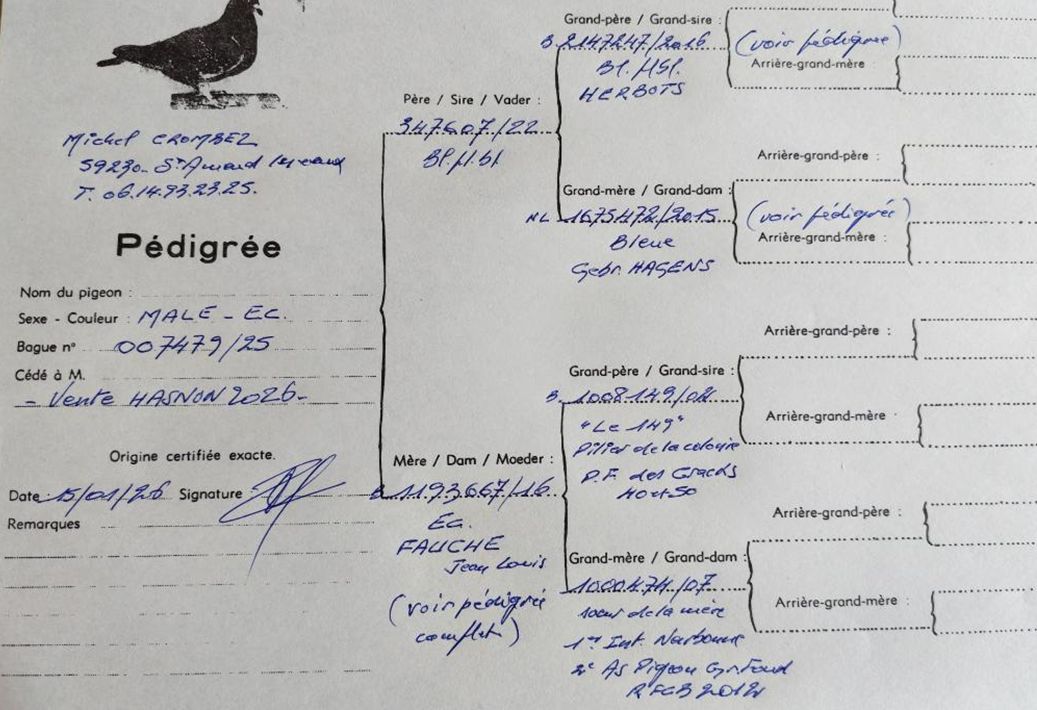 Michel CROMBEZ
59230 - St Amand les eaux
T. 06.14.93.23.25.
Pédigrée
Nom du pigeon :
Sexe - Couleur : MALE - EC.
Bague n° 007479/25
Cédé à M.
- Vente HASNON 2026 -
Origine certifiée exacte.
Date 15/01/26 Signature
Remarques
Père / Sire / Vader :
347607/22
Bl.
Mère / Dam / Moeder :
B 1193667/16
Ec.
FAUCHE
Jean Louis
(voir pédigrée
complet)
Grand-père / Grand-sire :
B. 2147247/2016
HERBOTS
Grand-mère / Grand-dam :
NL 1675472/2015
Bleue
Gebr. HAGENS
Grand-père / Grand-sire :
B. 1008149/
"Le 149"
Pilier de la colonie
P.F. des Gracds
40 et 50
Grand-mère / Grand-dam :
1000474/07
soeur de la mère
1er Int. Narbonne
2e As Pigeon Gr. Fond
RFCB 2012
(voir pédigrée)
Arrière-grand-mère :
Arrière-grand-père :
(voir pédigrée)
Arrière-grand-mère :
Arrière-grand-père :
Arrière-grand-mère :
Arrière-grand-père :
Arrière-grand-mère :